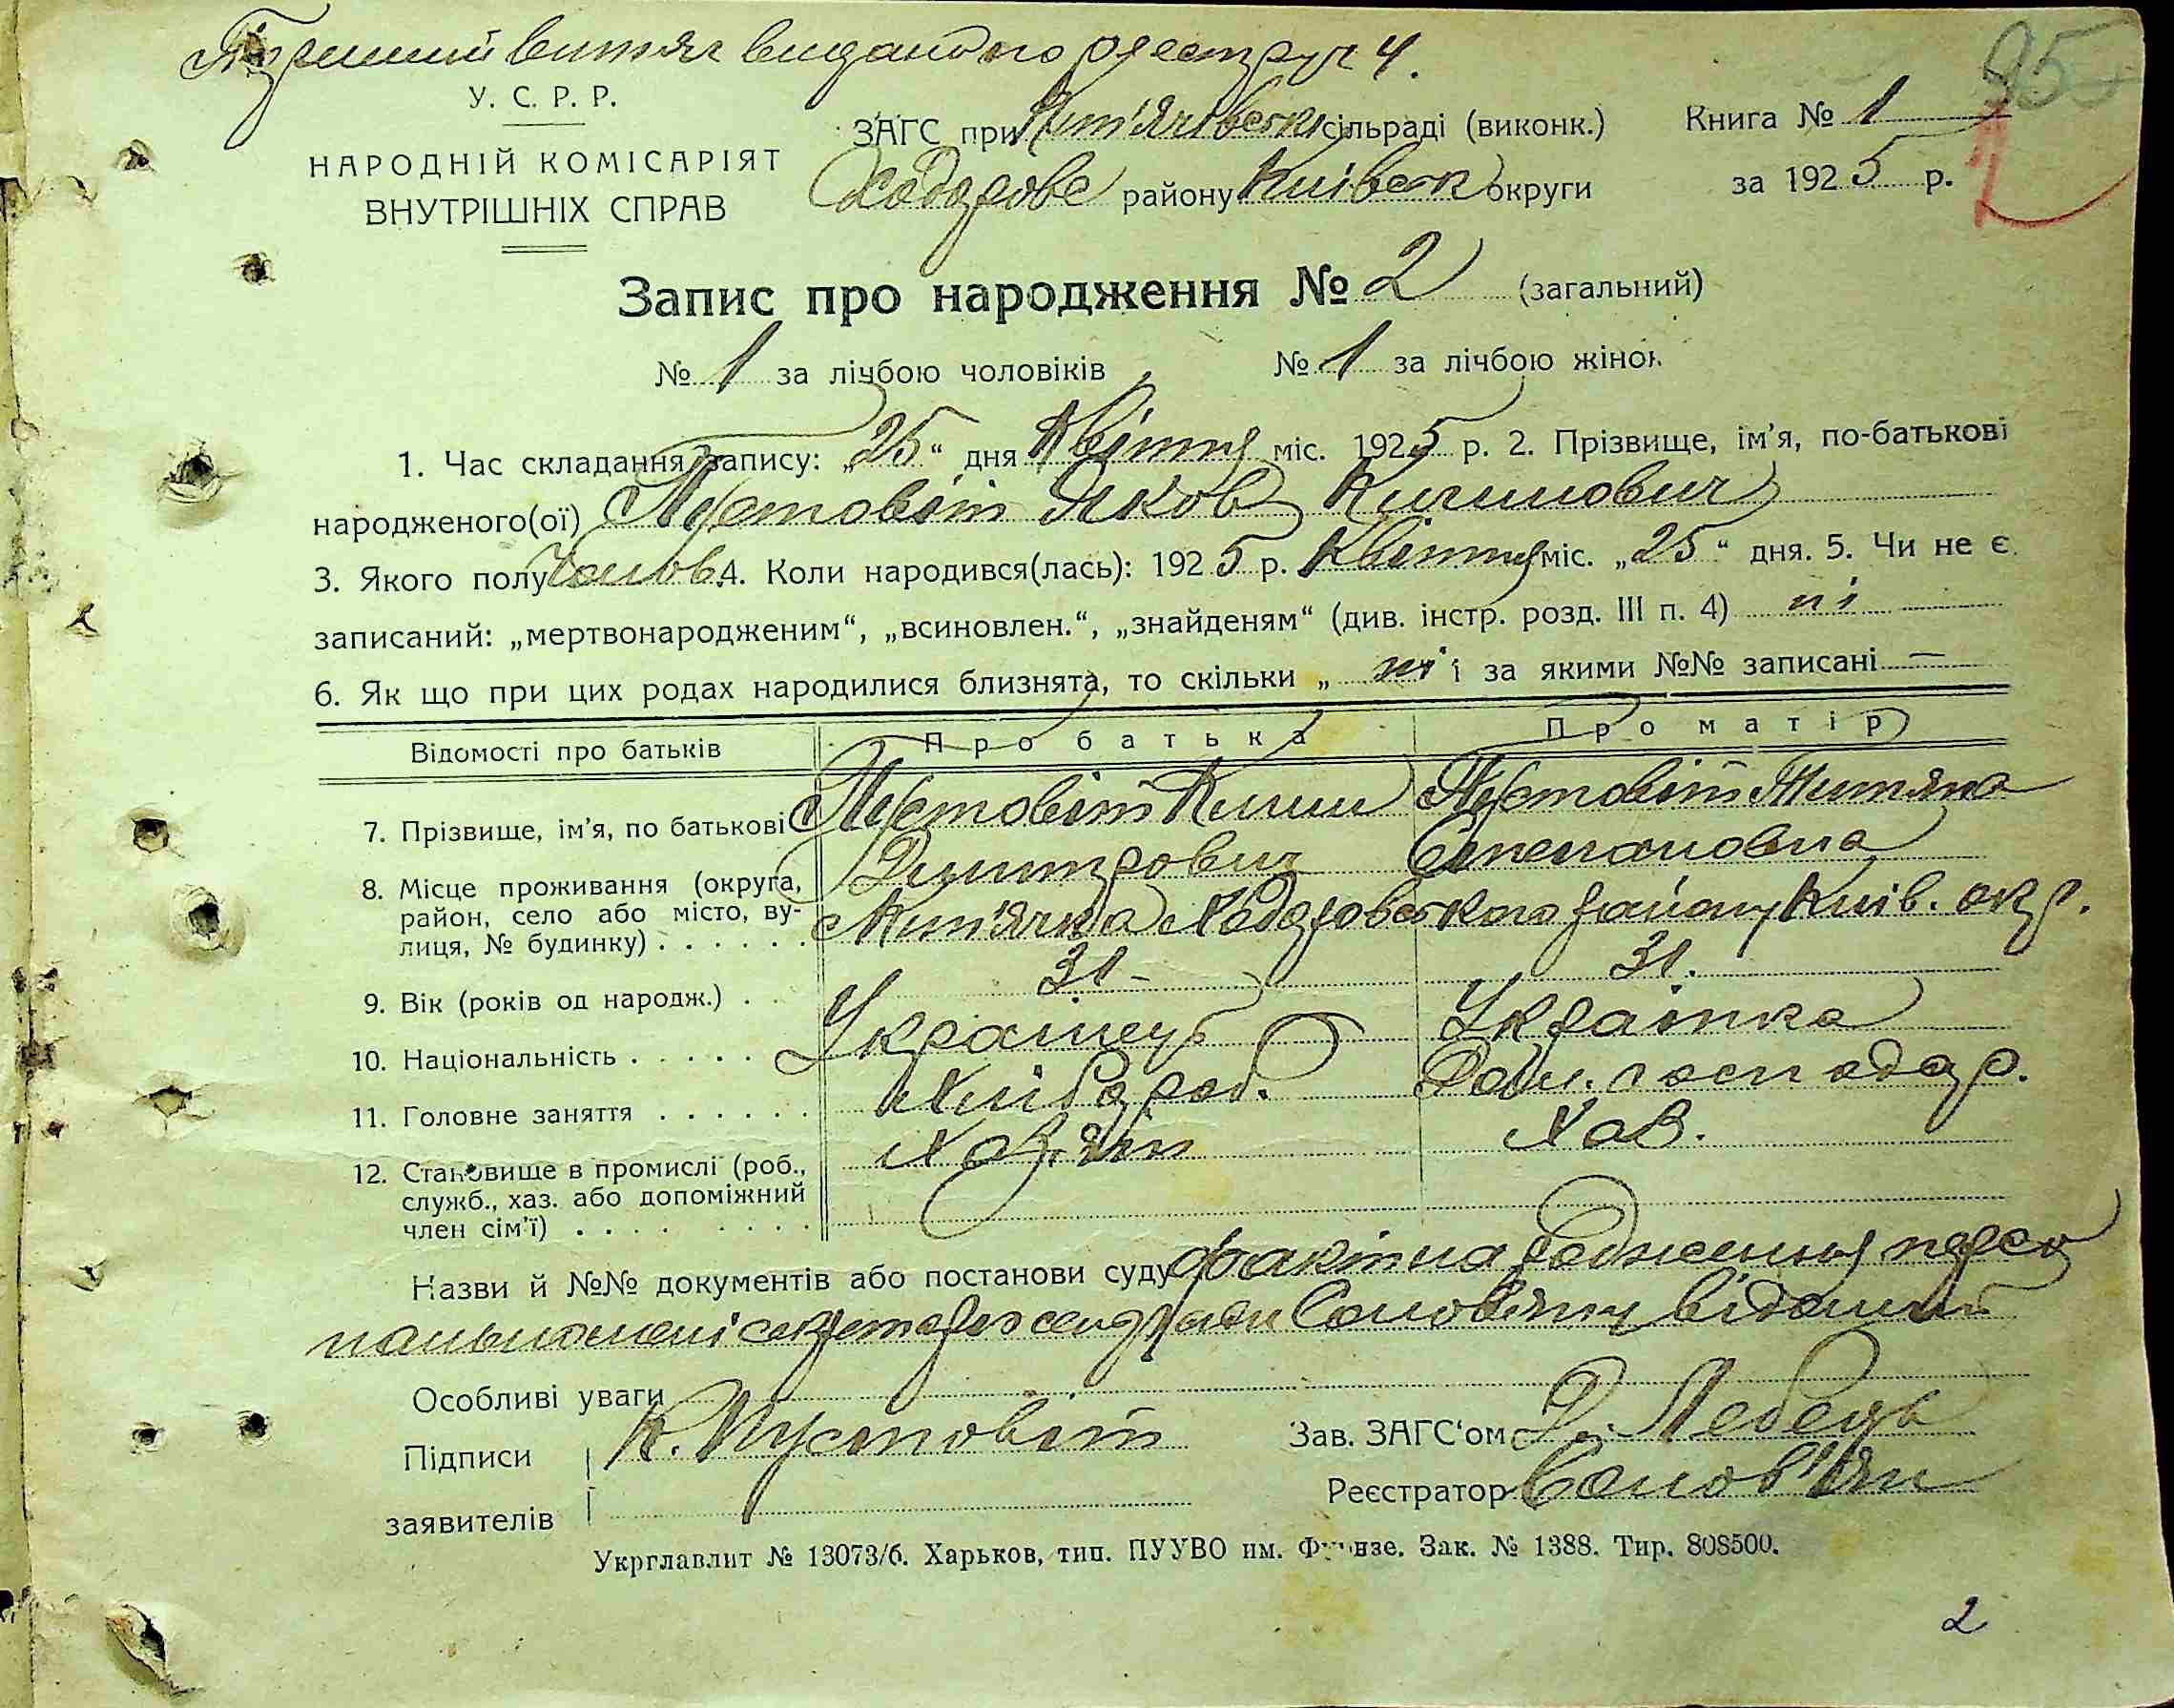 витяг видано по реестру ч 4.
У. С. Р. Р.
НАРОДНІЙ КОМІСАРІЯТ
ВНУТРІШНІХ СПРАВ
ЗАГС при сільраді (виконк.)
району Київськ округи
Книга № 1
за 1925 р.
95
2
Запис про народження № 2 (загальний)
№ 1 за лічбою чоловіків № 1 за лічбою жінок
1. Час складання запису: „25“ дня Квітня міс. 1925 р. 2. Прізвище, ім'я, по-батькові
народженого(ої) Пустовіт Яков Килинович
3. Якого полу Чолов. 4. Коли народився(лась): 1925 р. Квітня міс. „25“ дня. 5. Чи не є
записаний: „мертвонародженим“, „всиновлен.“, „знайденям“ (див. інстр. розд. III п. 4) ні
6. Як що при цих родах народилися близнята, то скільки „ ні і за якими №№ записані —
Відомості про батьків Про батька Про матір
7. Прізвище, ім'я, по батькові Пустовіт Килин Пустовіт Титяна
Дмитрович Степановна
8. Місце проживання (округа,
район, село або місто, ву-
лиця, № будинку) . . . . . . Пит'ячка Ходоровського району Київ. окр.
9. Вік (років од народж.) . 31- 31.
10. Національність . . . . . Українець Українка
11. Головне заняття . . . . . . Хлібороб. Дом. господар.
12. Становище в промислі (роб.,
служб., хаз. або допоміжний
член сім'ї) . . . . . . . . Хазяїн Хаз.
Назви й №№ документів або постанови суду факт народження персо
нально мені секретарю сельради Соловіяну відомий
Особливі уваги
Підписи К. Пустовіт
заявителів
Зав. ЗАГС'ом Д. Лебедь
Реєстратор Солов'ян
Укрглавлит № 13073/б. Харьков, тип. ПУУВО им. Фрунзе. Зак. № 1388. Тир. 808500.
2